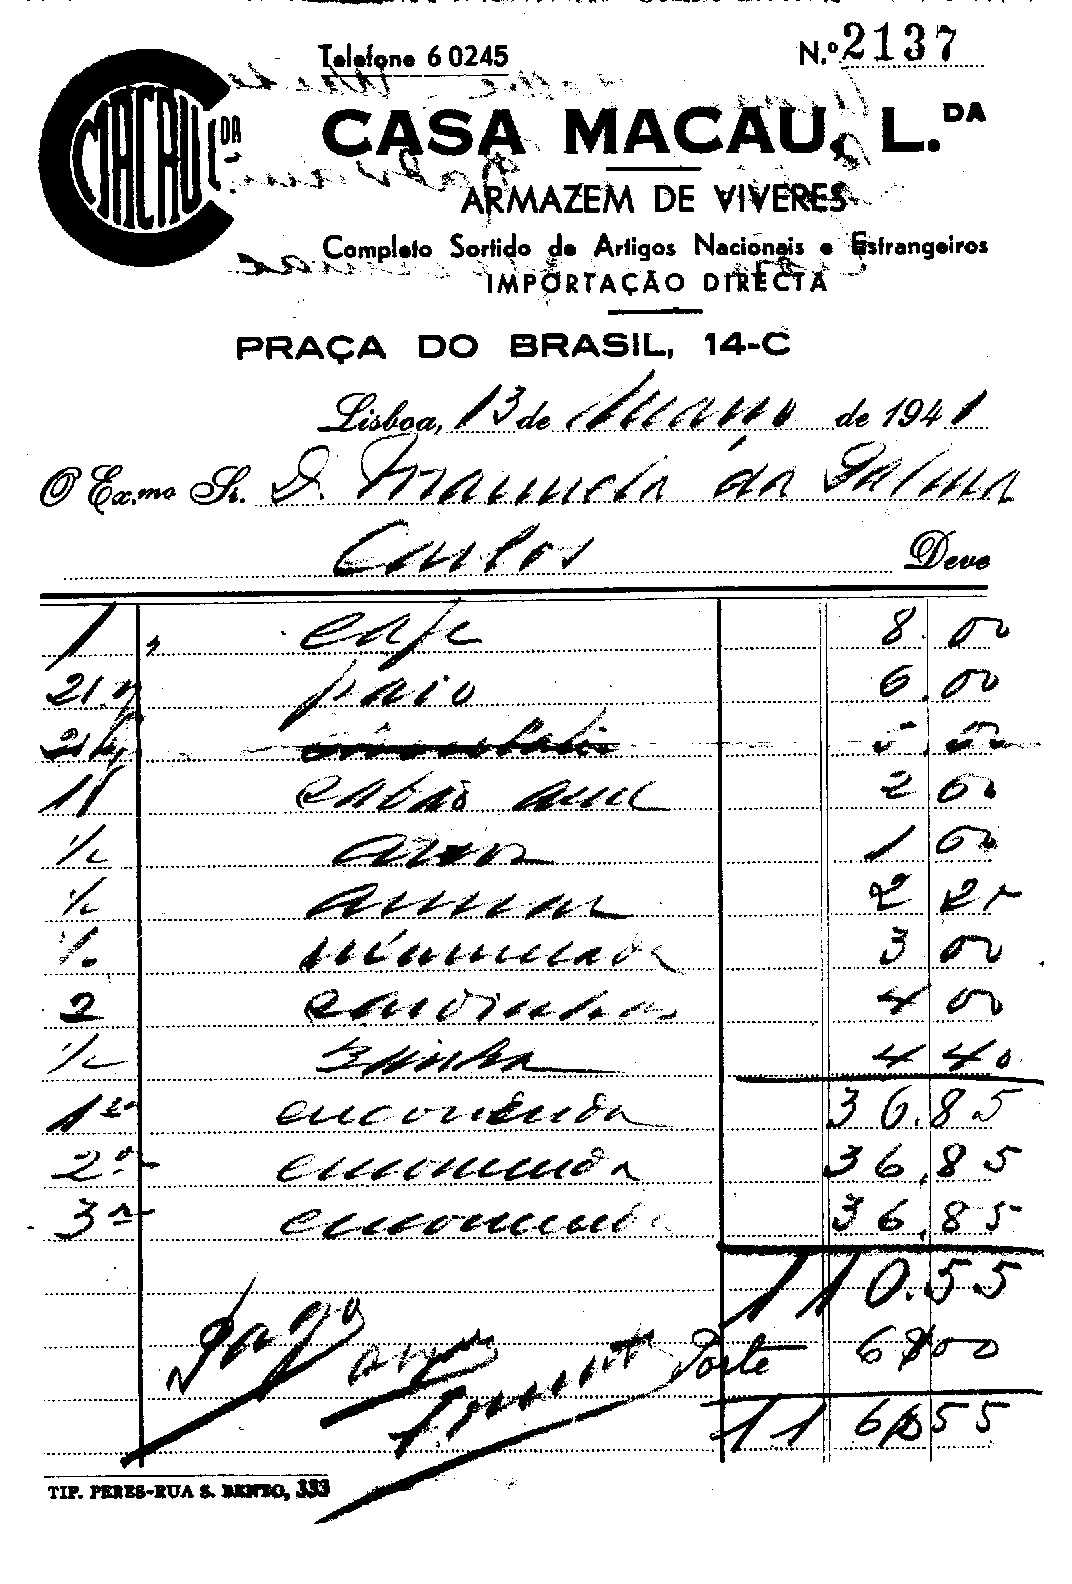 Telefone 6 0245
N.º 2137
MACAU L.DA
CASA MACAU, L.DA
ARMAZEM DE VIVERES
Completo Sortido de Artigos Nacionais e Estrangeiros
IMPORTAÇÃO DIRECTA
PRAÇA DO BRASIL, 14-C
Lisboa, 13 de Março de 1941
O Ex.mo Sr. D. Manuela da Palma
Carlos Deve
1 " cafe 8.00
21 paio 6.00
21
1 sabão azul 2 60
1/2 arroz 1 60
1/2 2 25
1/2 marmelada 3 00
2 sardinhas 4 00
1/2 Banha 4 40
1ª encomenda 36.85
2ª encomenda 36.85
3ª encomenda 36.85
110.55
Porte 6$00
116$55
Pago
TIP. PERES-RUA S. BENTO, 333